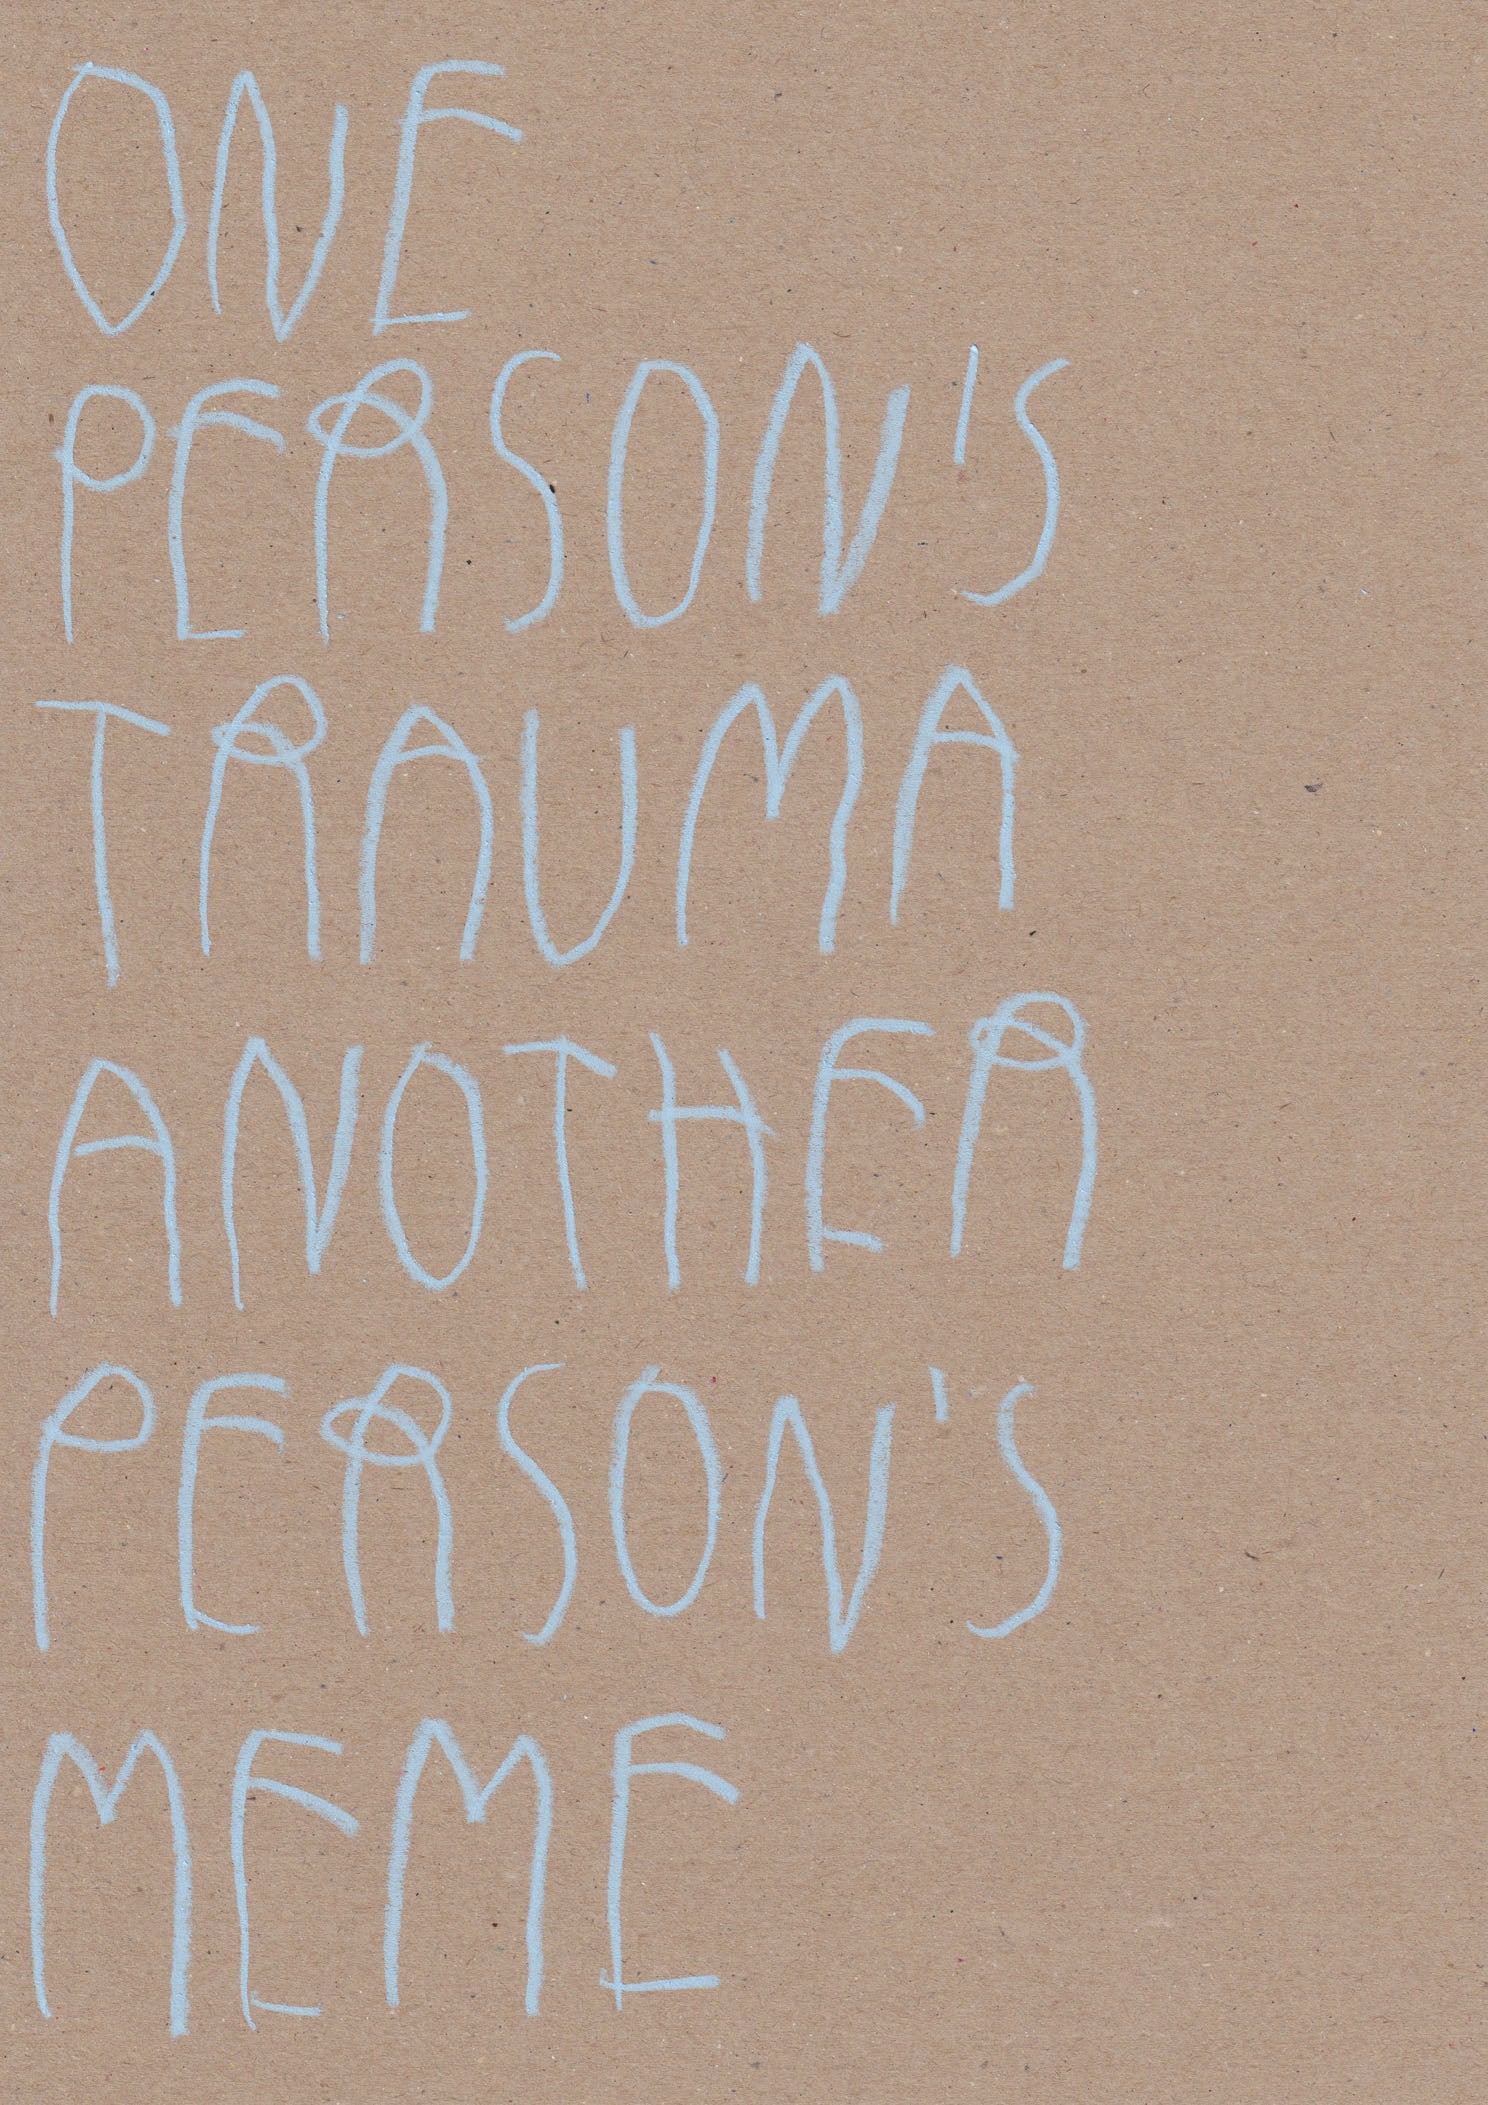 ONE
PERSON'S
TRAUMA
ANOTHER
PERSON'S
MEME